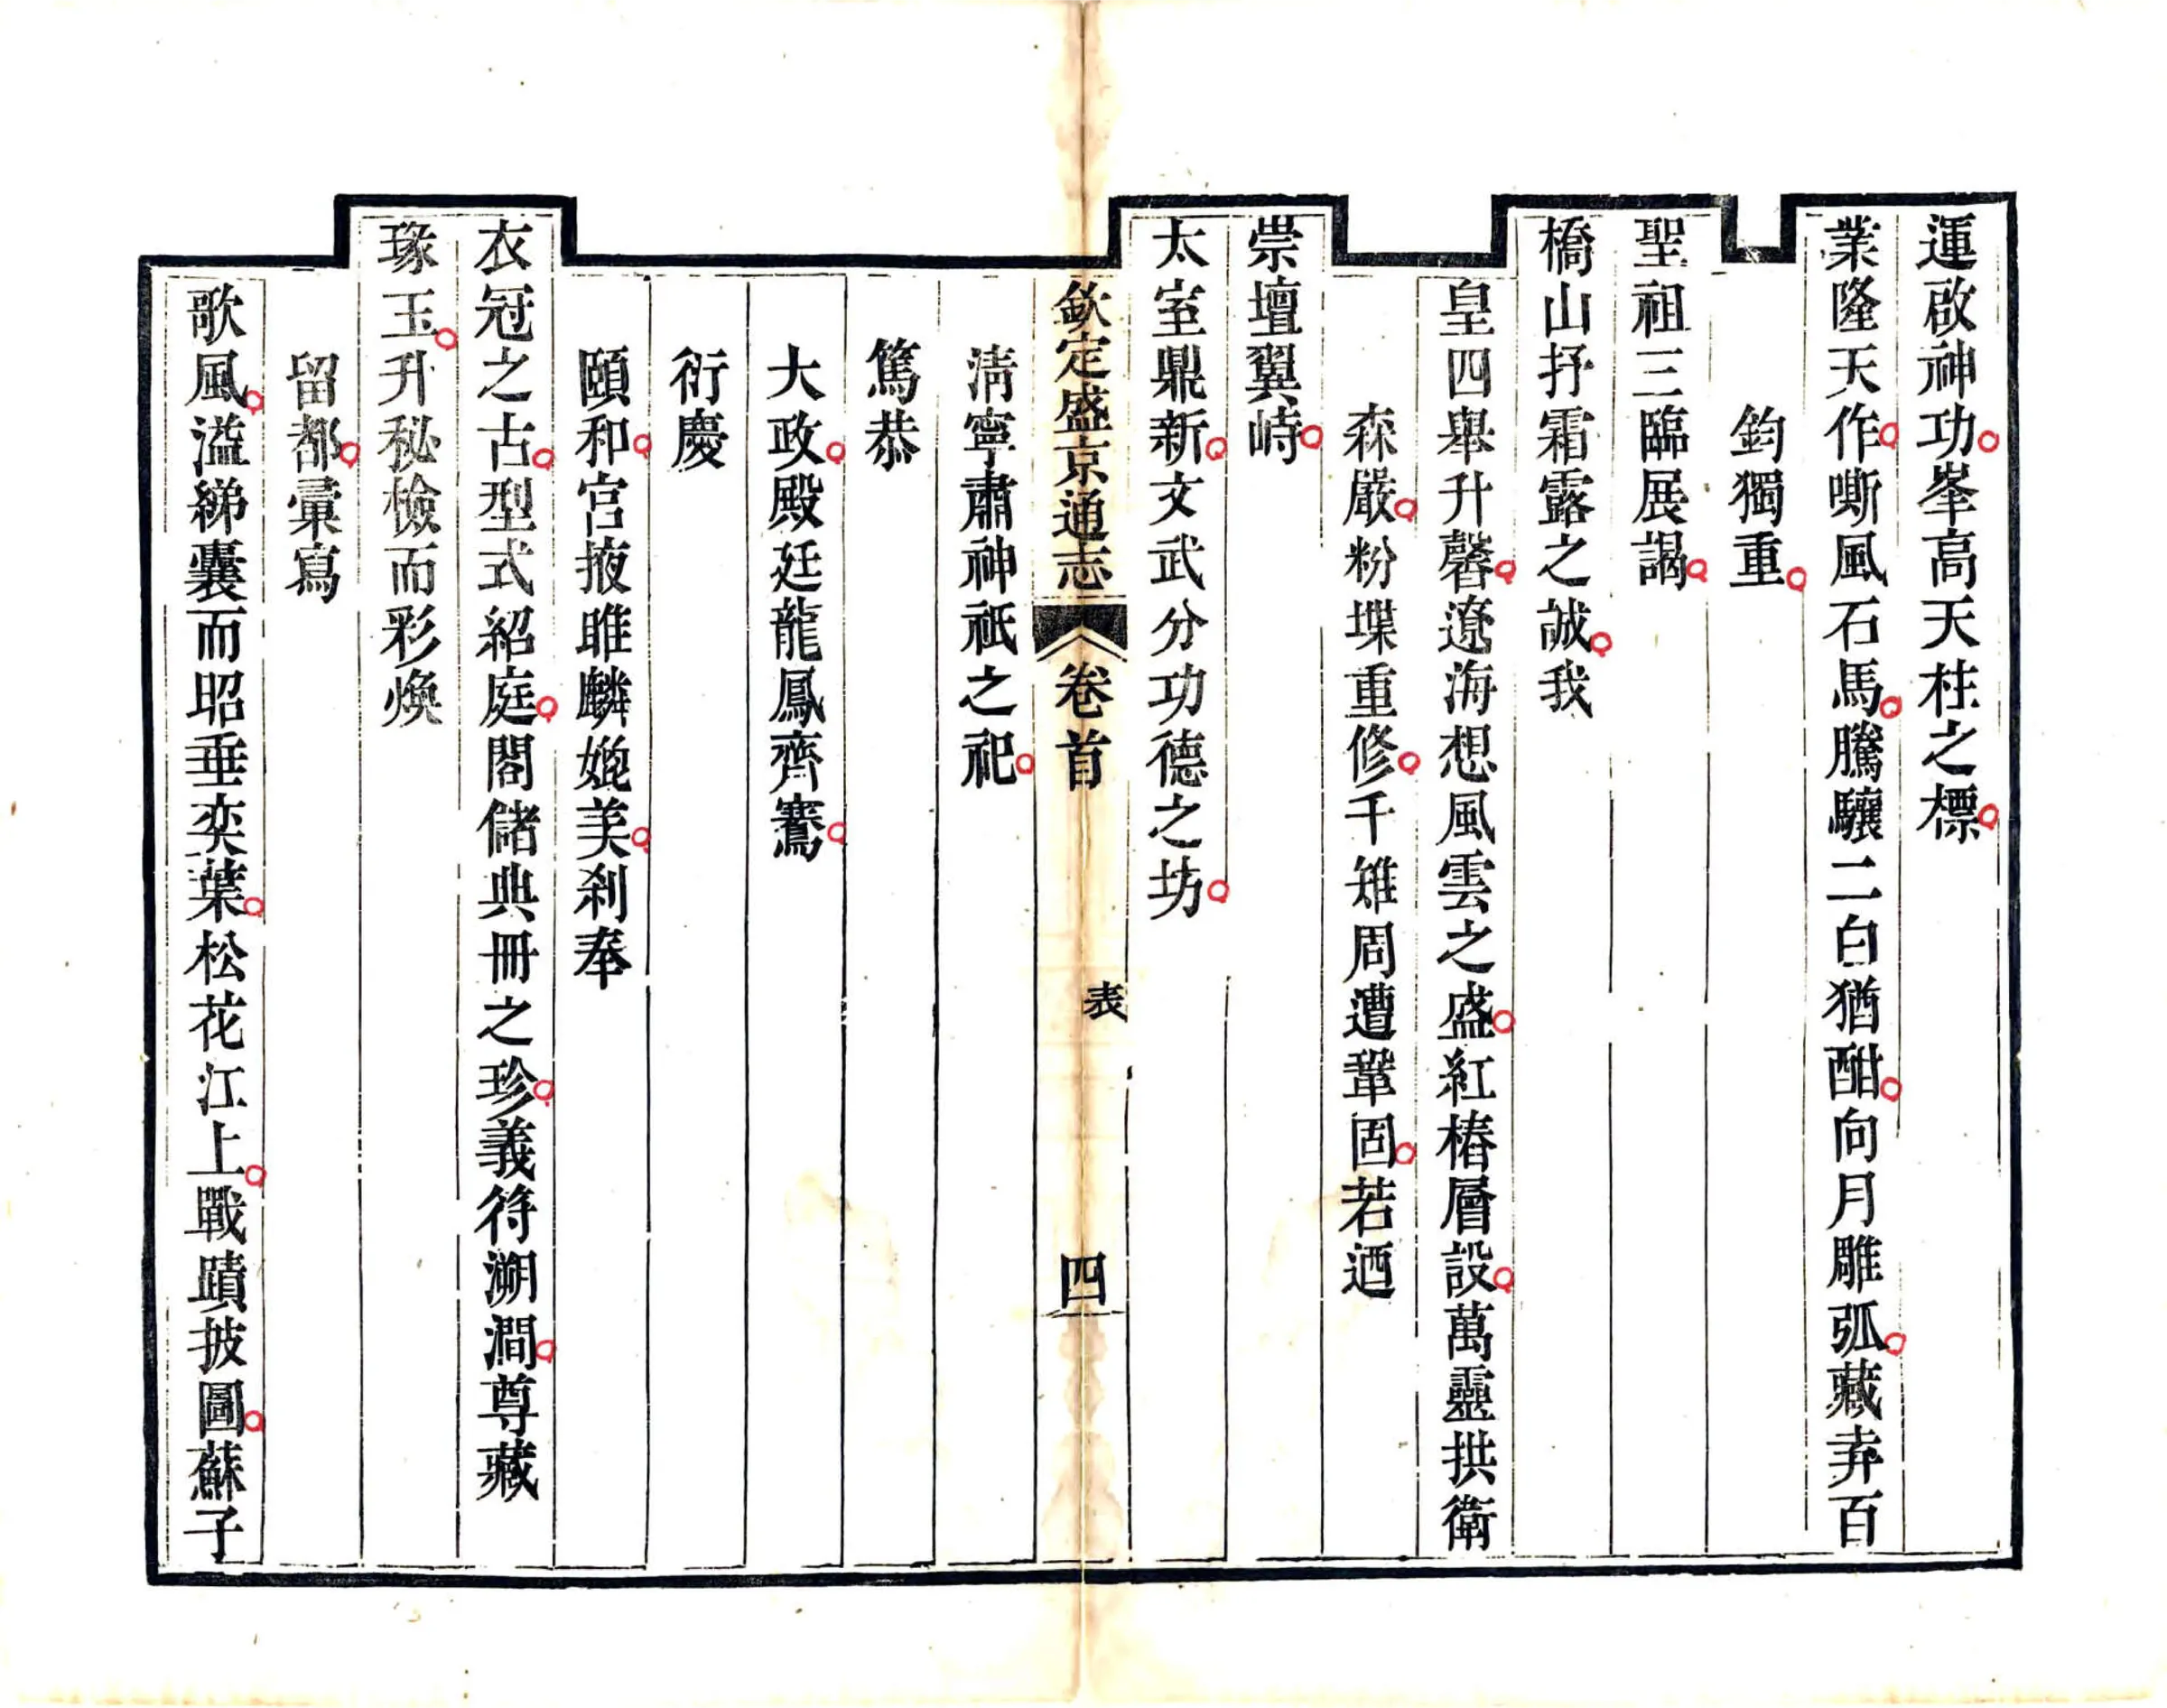 運啟神功峯高天柱之標
業隆天作嘶風石馬騰驤二白猶酣向月雕弧藏弆百
鈞獨重
聖祖三臨展謁
橋山抒霜露之誠我
皇四舉升馨遼海想風雲之盛紅樁層設萬靈拱衛
森嚴粉堞重修千雉周遭鞏固若迺
崇壇翼峙
太室鼎新文武分功德之坊
欽定盛京通志 卷首 表 四
淸寧肅神祇之祀
篤恭
大政殿廷龍鳳齊騫
衍慶
頤和宮掖雎麟媲美剎奉
衣冠之古型式紹庭閣儲典冊之珍義符溯澗尊藏
瑑玉升秘檢而彩煥
留都彙寫
歌風溢綈囊而昭垂奕葉松花江上戰蹟披圖蘇子